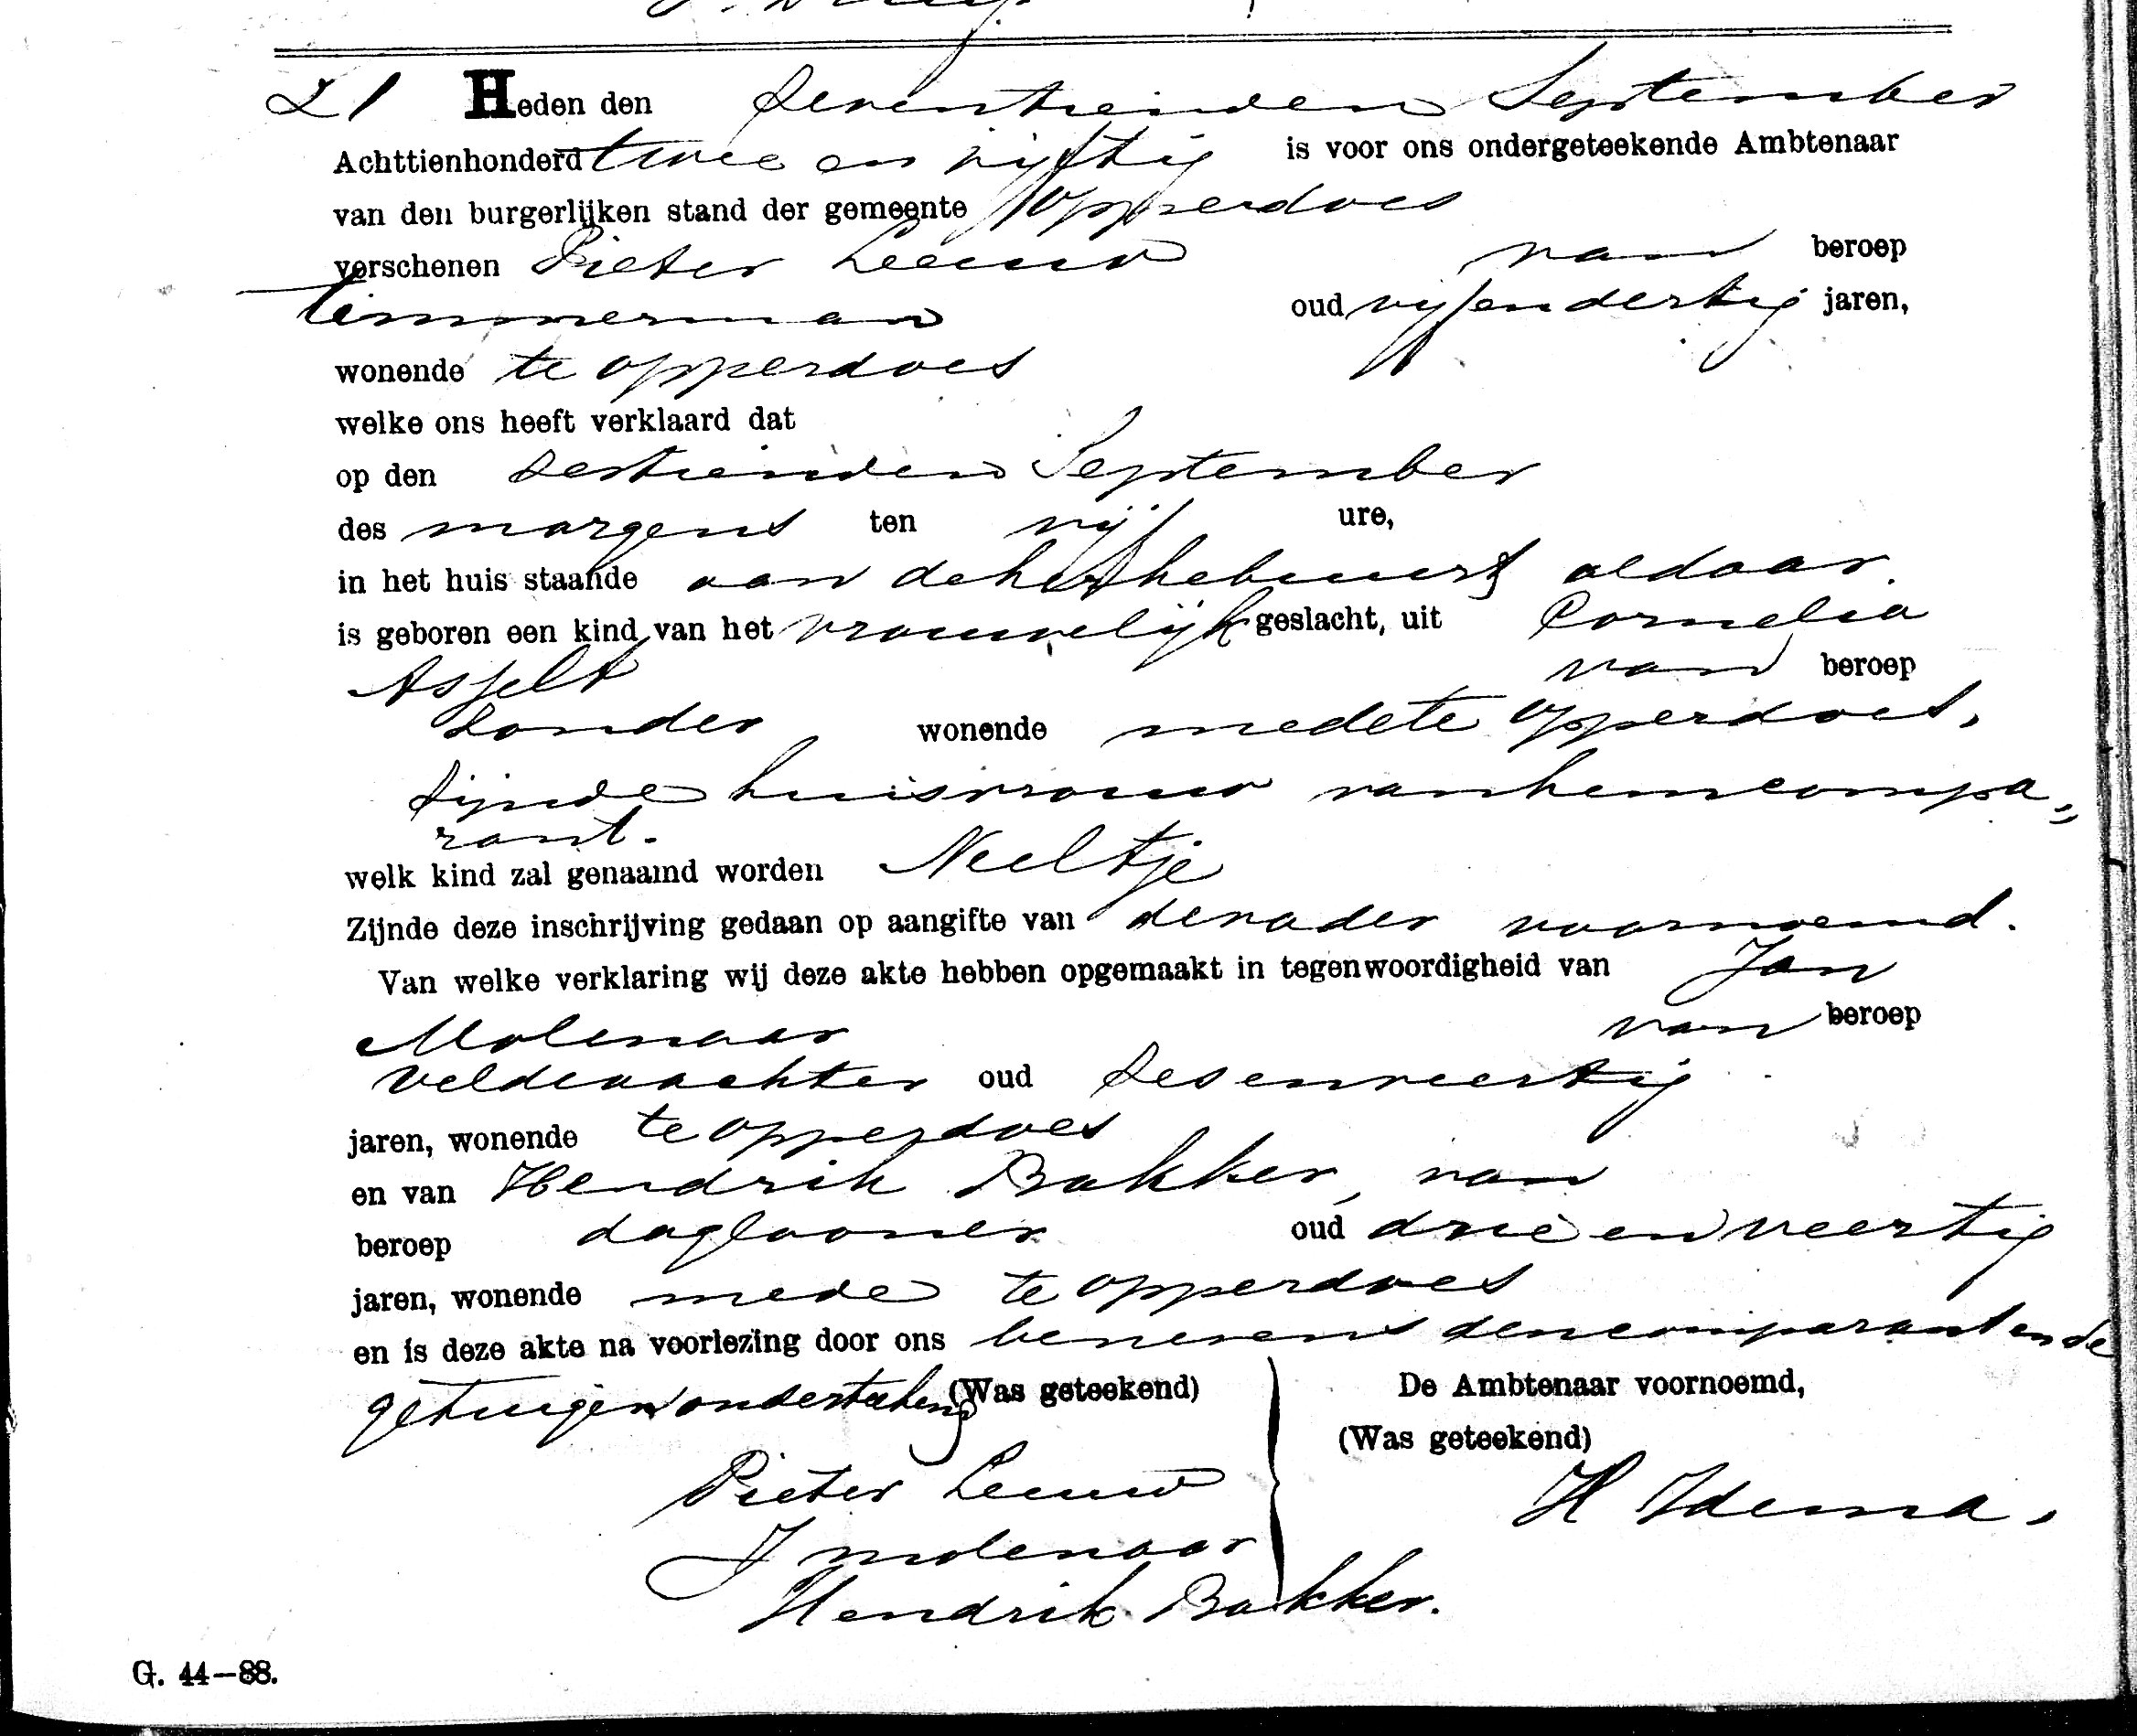 21 Heden den seventienden September
Achttienhonderd twee en vijftig is voor ons ondergeteekende Ambtenaar
van den burgerlijken stand der gemeente Opperdoes
verschenen Pieter Leeuw van beroep
timmerman oud vijfendertig jaren,
wonende te opperdoes
welke ons heeft verklaard dat
op den sestienden September
des morgens ten vijf ure,
in het huis staande aan de aldaar.
is geboren een kind van het vrouwelijk geslacht, uit Cornelia
Asselt van beroep
sonder wonende mede te Opperdoes,
sijnde huisvrouw van hem compa„
rant.
welk kind zal genaamd worden Neeltje
Zijnde deze inschrijving gedaan op aangifte van de vader voornoemd.
Van welke verklaring wij deze akte hebben opgemaakt in tegenwoordigheid van Jan
Molenaar van beroep
veldwachter oud sesenveertig
jaren, wonende te opperdoes
en van Hendrik Bakker, van
beroep daglooner oud drie en veertig
jaren, wonende mede te opperdoes
en is deze akte na voorlezing door ons benevens den comparant en de
getuigen ondertekend (Was geteekend) De Ambtenaar voornoemd,
(Was geteekend)
Pieter Leeuw H Idema,
J molenaar
Hendrik Bakker.
G. 44—88.